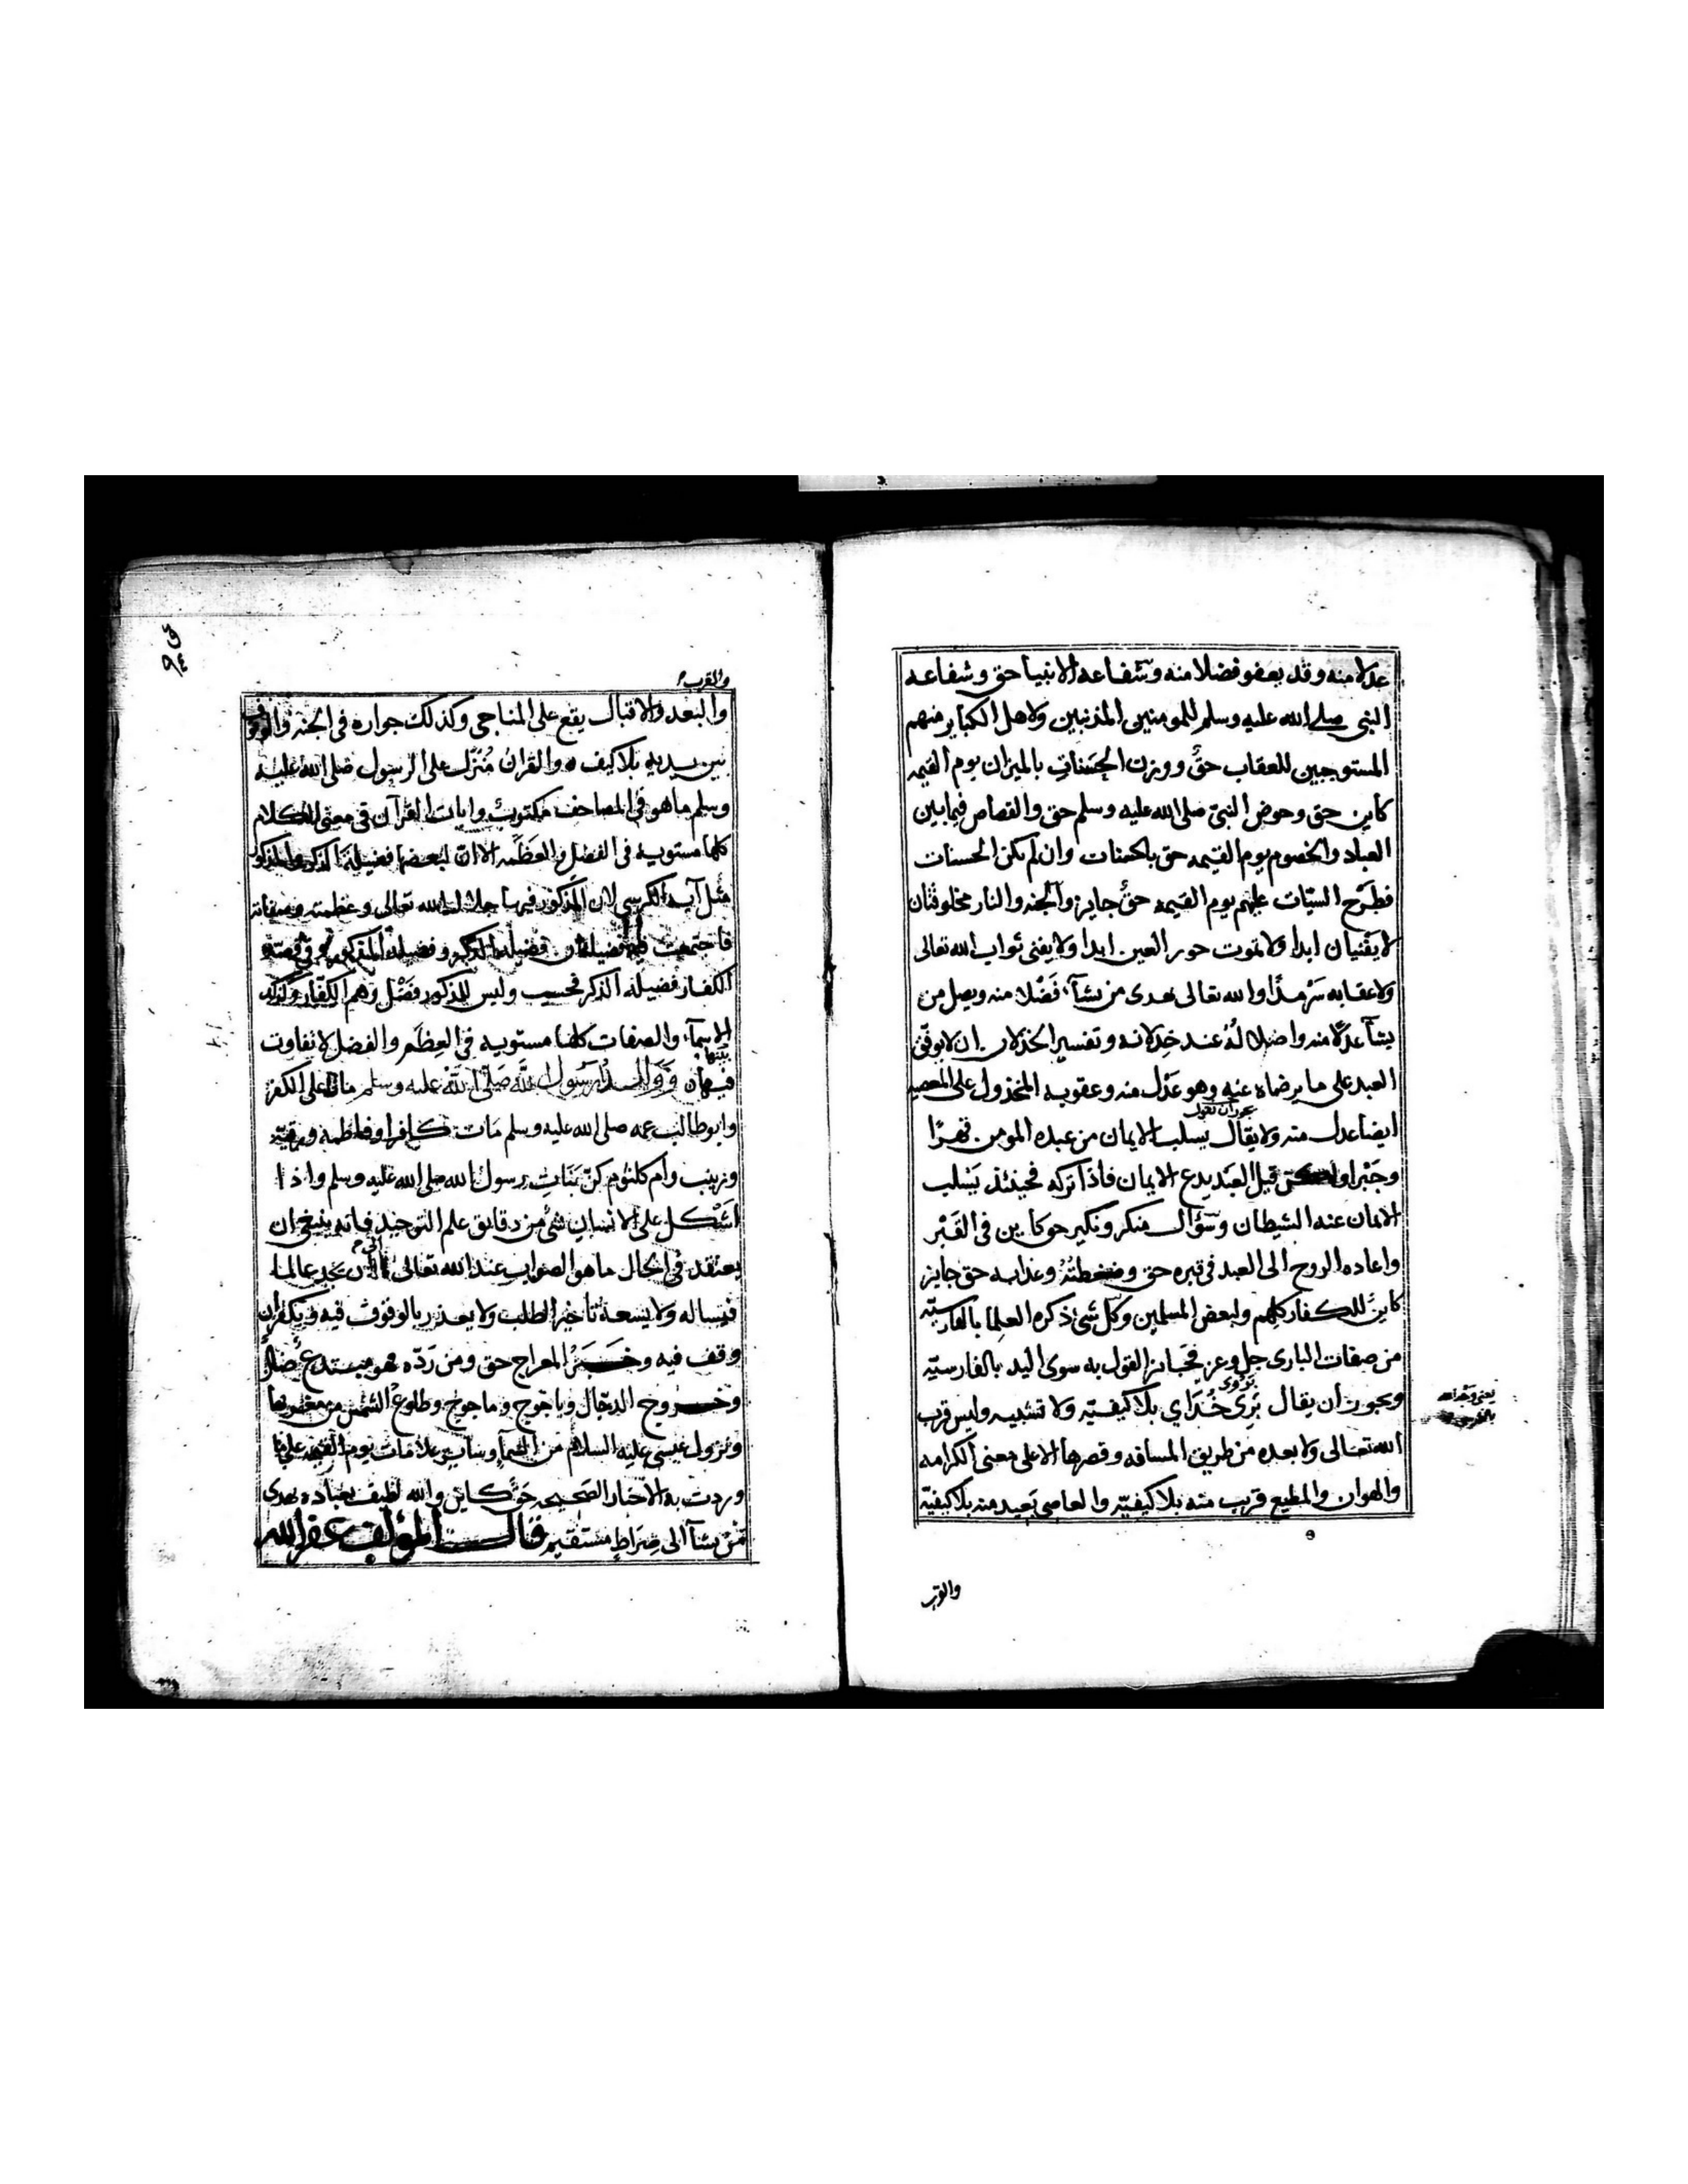 عدلا منه وقد يعفو فضلا منه وشفاعه الانبيا حق وشفاعه
النبى صلى الله عليه وسلم للمومنين المذنبين ولاهل الكباير منهم
المستوجبين للعقاب حق ووزن الحسنات بالميزان يوم القيمه
كاين حق وحوض النبى صلى الله عليه وسلم حق والقصاص فيما بين
العباد والخصوم يوم القيمه حق بالحسنات وان لم تكن الحسنات
فطرح السيات عليهم يوم القيمه حق جايز والجنه والنار مخلوقتان
لا يفنيان ابدا ولا تموت حور العين ابدا ولا يفنى ثواب الله تعالى
ولا عقابه سرمدا والله تعالى يهدى من يشآء فضلا منه ويضل من
يشآ عدلا منه واضلاله عند خذلانه وتفسير الخذلان ان لا يوفق
العبد على ما يرضاه عنه وهو عدل منه وعقوبه المخذول على المعصيه
يجوز ان نقول
ايضا عدل منه ولا يقال يسلب الايمان من عبده المومن قهرًا
وجَبْرا ولكن قبل العبد يدع الايمان فاذا تركه فحينئذ يسلب
الايمان عنه الشيطان وسؤال منكر ونكير حق كاين فى القبر
واعاده الروح الى العبد فى قبره حق وضغطته وعذابه حق جايز
كاين للكفار كلهم ولبعض المسلمين وكل شئ ذكره العلما بالفارسيّه
من صفات البارى جل وعز فجايز القول به سوى اليد بالفارسيّه
بروى
ويجوز ان يقال برى خُدَاي بلا كيفيّه ولا تشبيه وليس قرب
يعنى وجه الله
الله تعالى ولا بعده من طريق المسافه وقصرها الا على معنى الكرامه
والهوان والمطيع قريب منه بلا كيفيّه والعاصى بَعيد منه بلا كيفيّه
والقرب
والقرب
والبعد والاقبال يقع على المناجى وكذلك جواره فى الجنه والوقوف
بين يديه بلا كيف والقران مُنَزّل على الرسول صلى الله عليه
وسلم ما هو فى المصاحف مكتوب وايات القرآن فى معنى الكلام
كلها مستويه فى الفضل والعظمه الا ان لبعضها فضيلة الذكر والمذكور
مثل آيه الكرسى لان المذكور فيها جلال الله تعالى وعظمته وصفاته
فاجتمعت فيها فضيلتان فضيله الذكر وفضيله المذكور وفى قصه
الكفار فضيله الذكر فحسب وليس للمذكور فَضْل وهم الكفّار وكذلك
الاسمآء والصفات كلها مستويه فى العِظَم والفضل لا تفاوت
بينها
ووالدا رسول الله صَلّى الله عليه وسلم ماتا على الكفر
وابو طالب عمه صلى الله عليه وسلم مَات كافرا وفاطمه ورقيّه
وزينب وام كلثوم كنّ بَنَاتِ رسول الله صلى الله عليه وسلم واذا
اَشْكل على الانسان شئ من دقايق علم التوحيد فانه ينبغى ان
يعتقد فى الحال ما هو الصواب عند الله تعالى الى ان يجد عالما
فيساله ولا يسعه تاخير الطلب ولا يعذر بالوقوف فيه ويكفر ان
وقف فيه وخَبَرُ المعراج حق ومن ردّه فهو مبتدع ضال
وخروج الدجّال وياجوج وماجوج وطلوع الشمس من مغربها
ونزول عيسى عليه السلام من السمآ وساير علامات يوم القيمه على ما
وردت به الاخبار الصحيحه حَقّ كاين والله لطيف بعباده يهدى
مَن يشآ الى صِرَاطٍ مستقيم قال المؤلف غفر الله